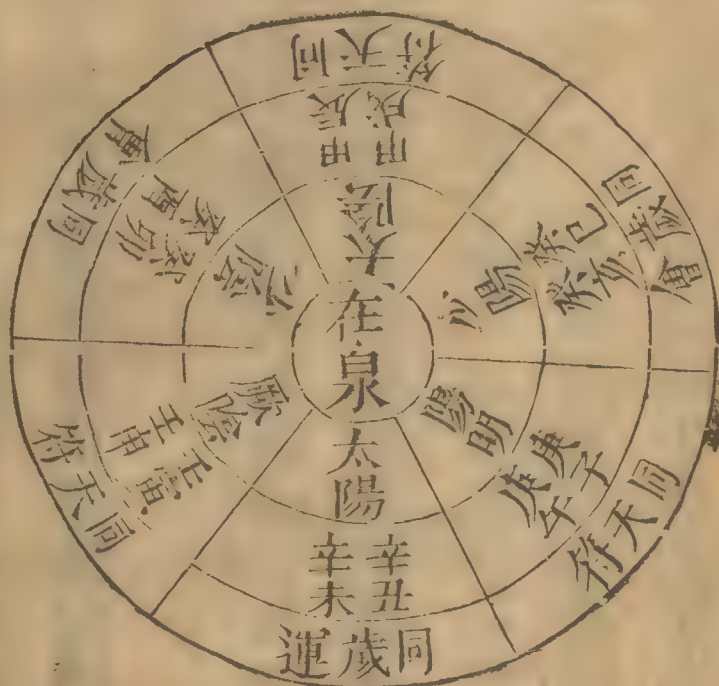 在泉
太陰
甲辰
甲戌
同天符
少陽
癸巳
癸亥
同歲會
陽明
庚子
庚午
同天符
太陽
辛丑
辛未
同歲運
厥陰
壬寅
壬申
同天符
少陰
癸卯
癸酉
同歲會